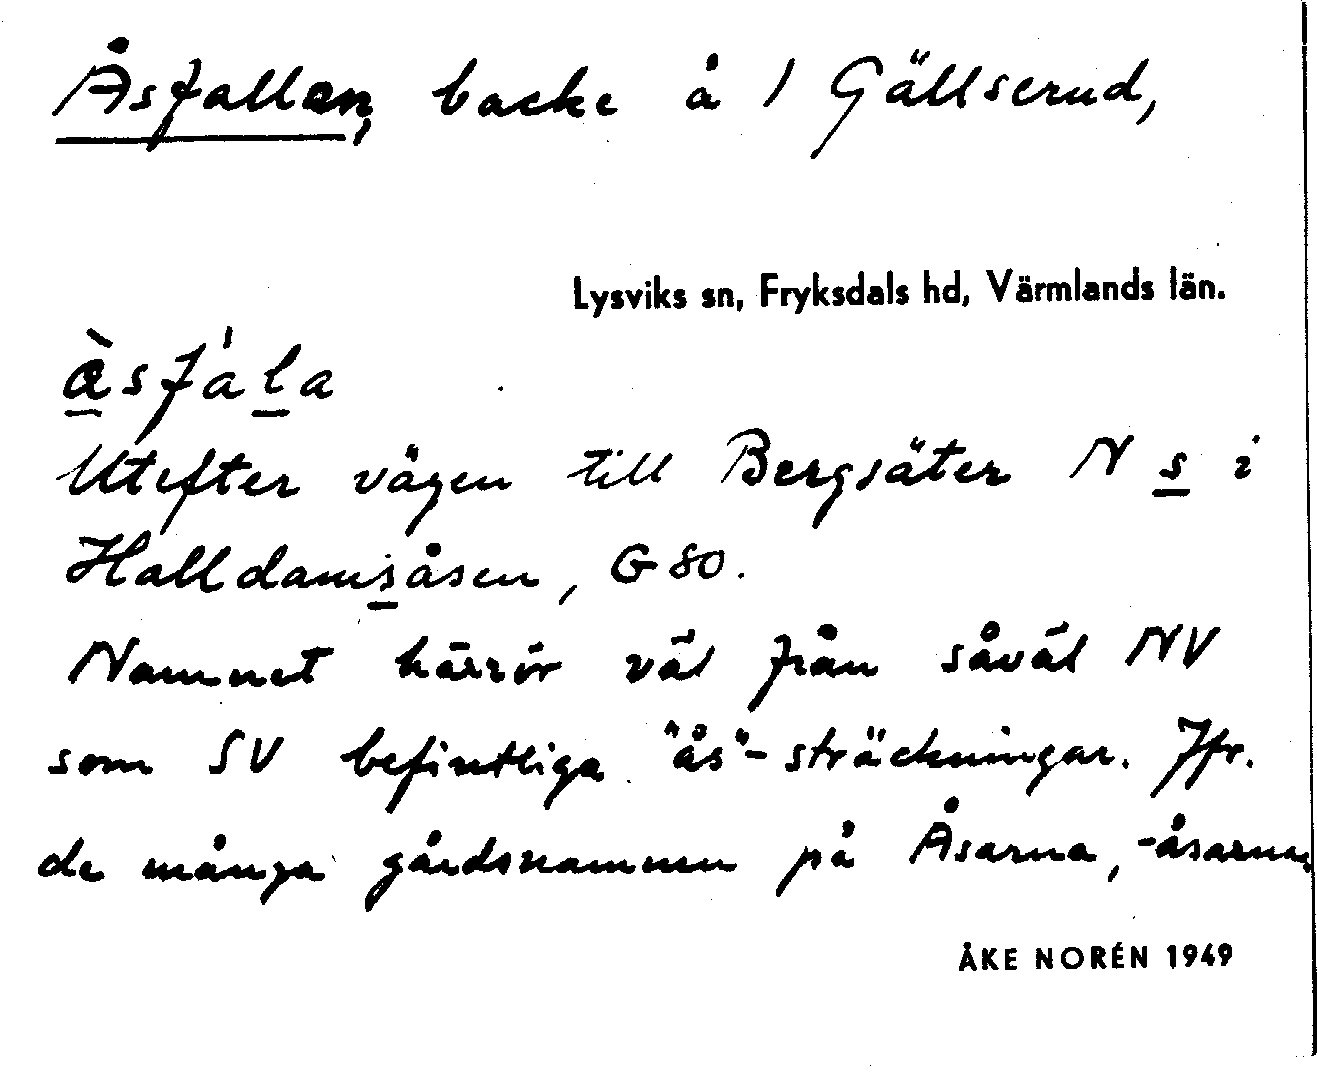 Åsfallen, backe å 1 Gällserud,
Lysviks sn, Fryksdals hd, Värmlands län.
å̀sfa̍la
Utefter vägen till Bergsäter N s i
Halldamsåsen, G 80.
Namnet härrör väl från såväl NV
som SV befintliga "ås"-sträckningar. Jfr.
de många gårdsnamnen på Åsarna, -åsarna.
ÅKE NORÉN 1949